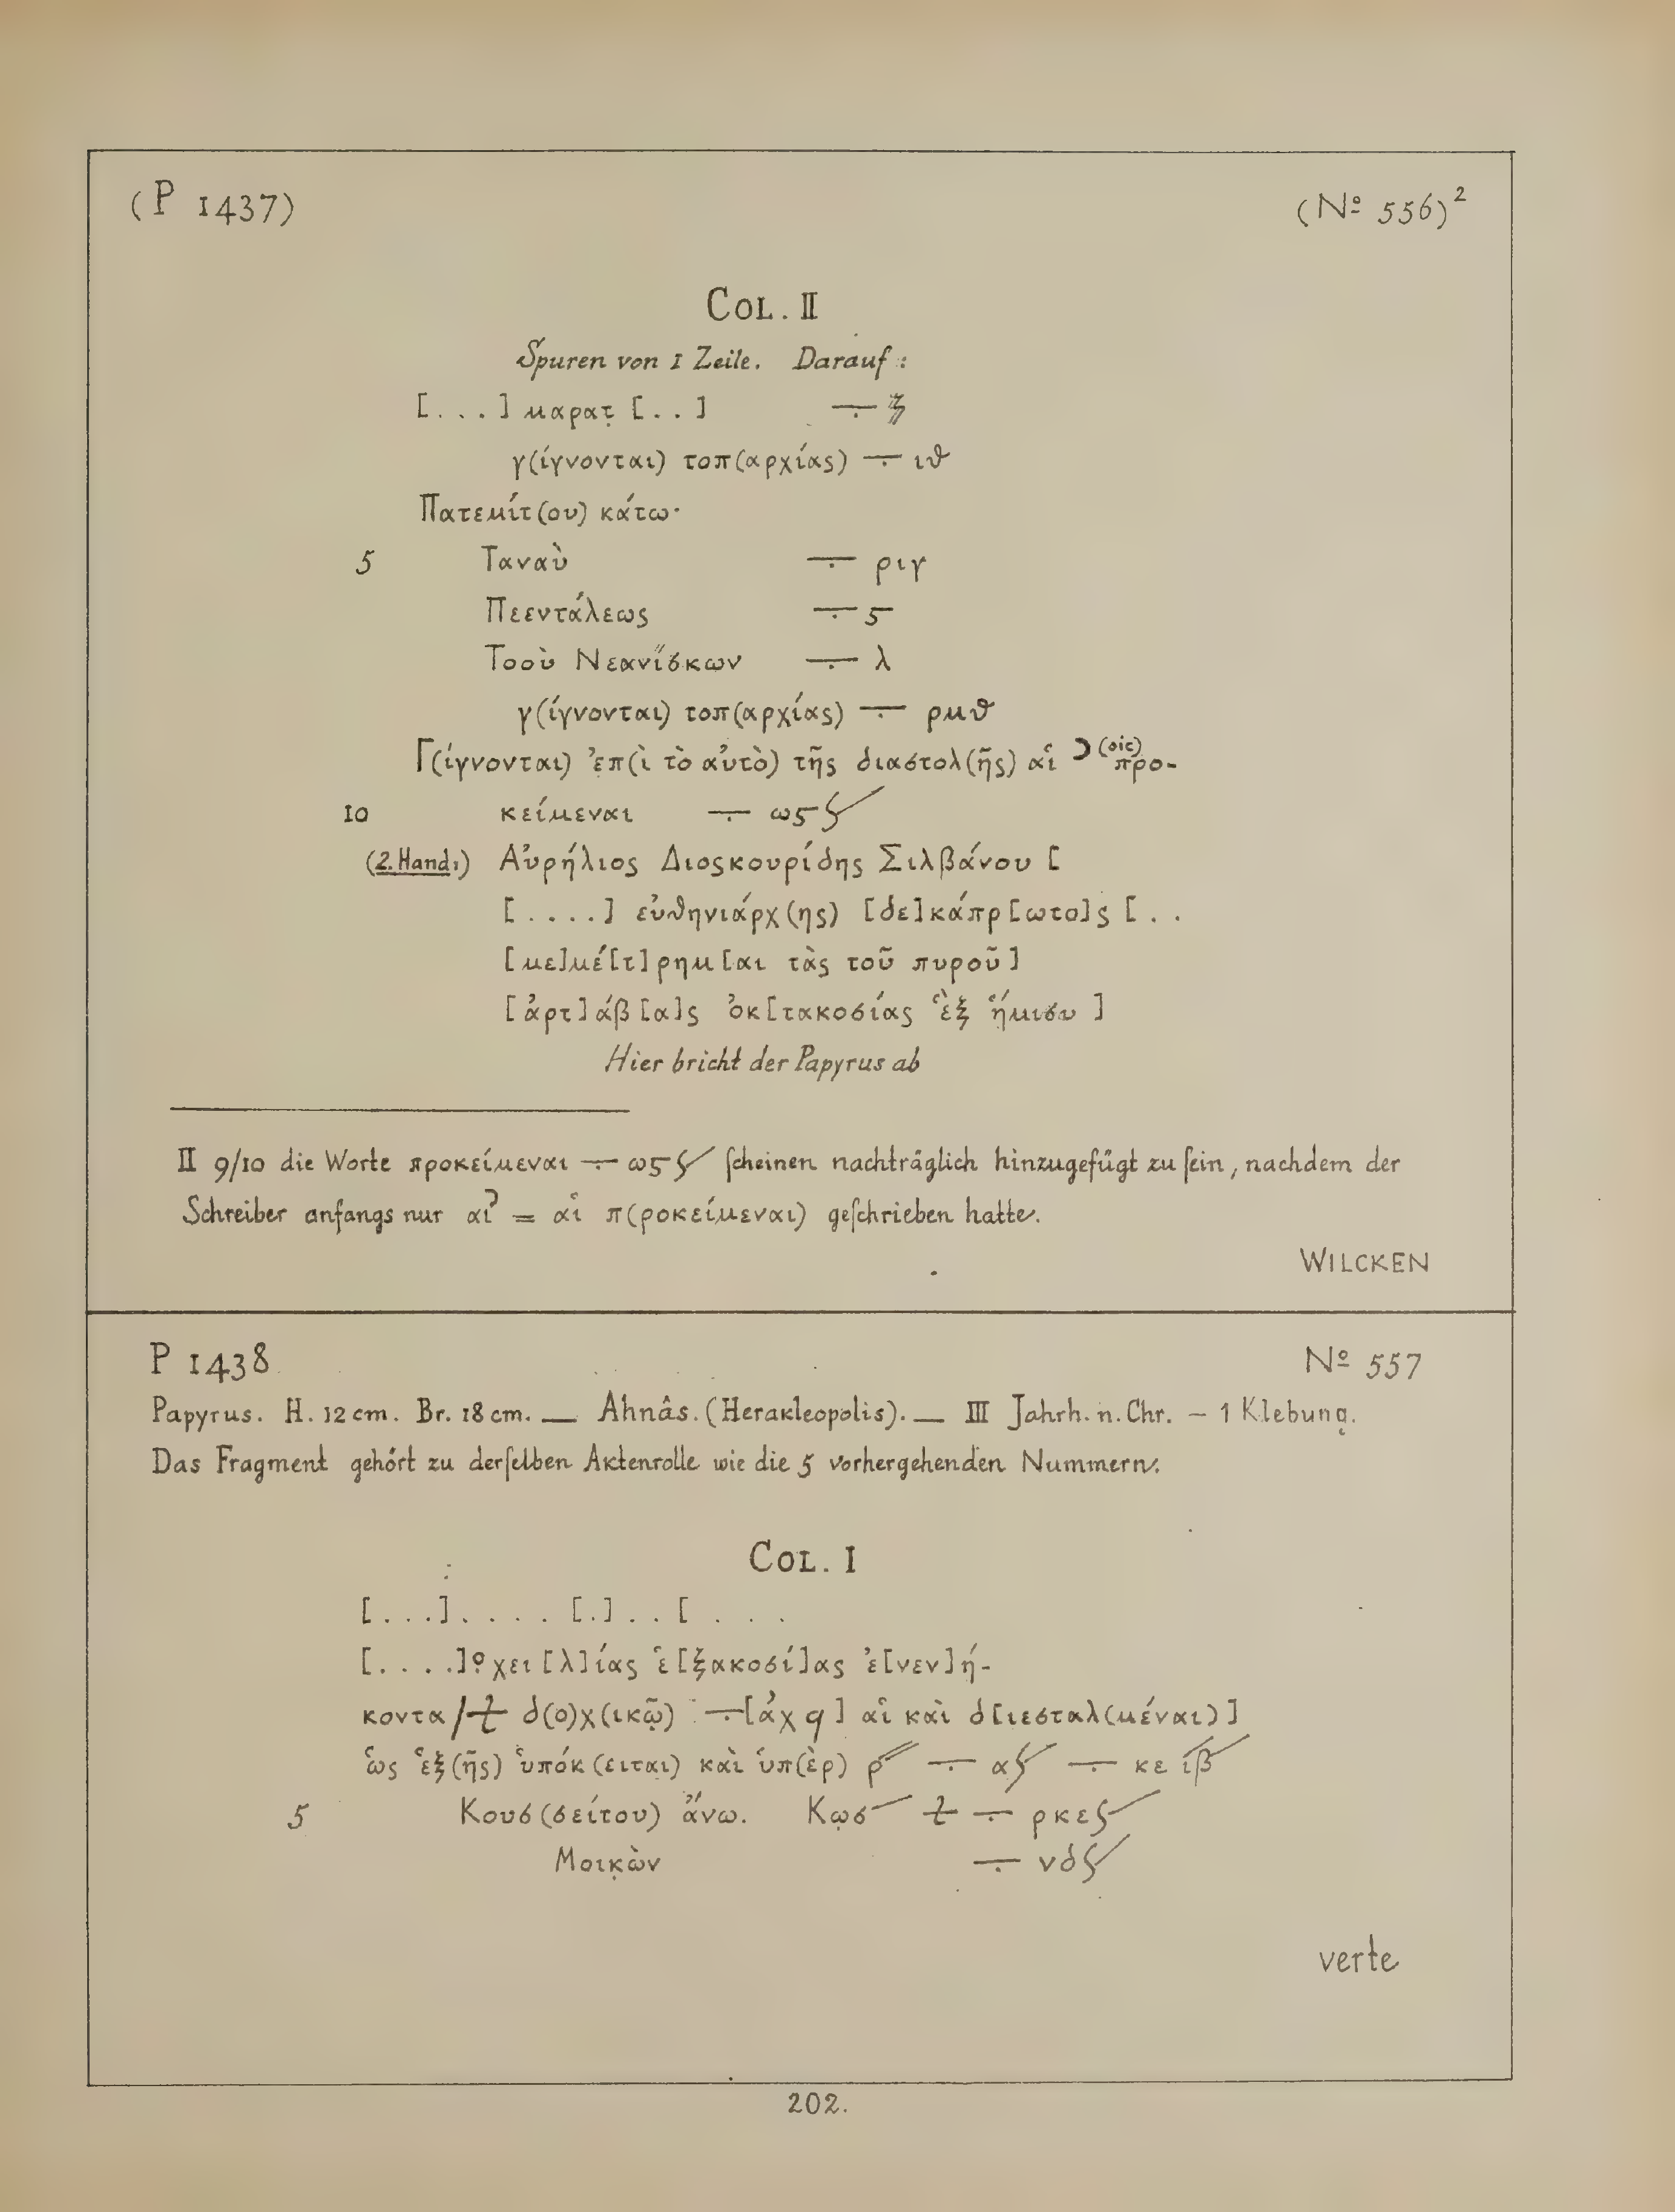 (P 1437) (Nº 556)²
COL. II
Spuren von 1 Zeile. Darauf:
[. . .] μαρατ̣ [. .] ⨪
γ(ίγνονται) τοπ(αρχίας) ⨪ ιθ
Πατεμίτ(ου) κάτω·
5 Ταναὺ ⨪ ριγ
Πεεντάλεως ⨪ ϛ
Τοοὺ Νεανΐσκων ⨪ λ
γ(ίγνονται) τοπ(αρχίας) ⨪ ρμθ
Γ(ίγνονται) ἐπ(ὶ τὸ αὐτὸ) τῆς διαστολ(ῆς) αἱ Ͻ (sic) προ-
10 κείμεναι ⨪ ωϛ𐅵
(2. Hand:) Αὐρήλιος Διοσκουρίδης Σιλβάνου [
[. . . .] εὐθηνιάρχ(ης) [δε]κάπρ[ωτο]ς [. .
[με]μέ[τ]ρημ[αι τὰς τοῦ πυροῦ]
[ἀρτ]άβ[α]ς ὀκ[τακοσίας ἓξ ἥμισυ ]
Hier bricht der Papyrus ab
II 9/10 die Worte προκείμεναι ⨪ ωϛ𐅵 ſcheinen nachträglich hinzugefügt zu ſein, nachdem der
Schreiber anfangs nur αἱᒣ = αἱ π(ροκείμεναι) geſchrieben hatte.
WILCKEN
P 1438 Nº 557
Papyrus. H. 12 cm. Br. 18 cm. — Ahnâs. (Herakleopolis). — III Jahrh. n. Chr. – 1 Klebung.
Das Fragment gehört zu derſelben Aktenrolle wie die 5 vorhergehenden Nummern.
COL. I
[. . .] . . . . [.] . . [ . . .
[. . . .]ο̣ χει[λ]ίας ἑ[ξακοσί]ας ἐ[νεν]ή-
κοντα / δ(ο)χ(ικῷ) ⨪ [ἀχϙ] αἱ καὶ δ[ιεσταλ(μέναι)]
ὡς ἑξ(ῆς) ὑπόκ(ειται) καὶ ὑπ(ὲρ) ρ ⨪ α𐅵 ⨪ κε ιβ
5 Κουσ(σείτου) ἄνω. Κω̣σ ⨪ ρκε𐅵
Μοικ̣ὼν ⨪ νδ𐅵
verte
202.